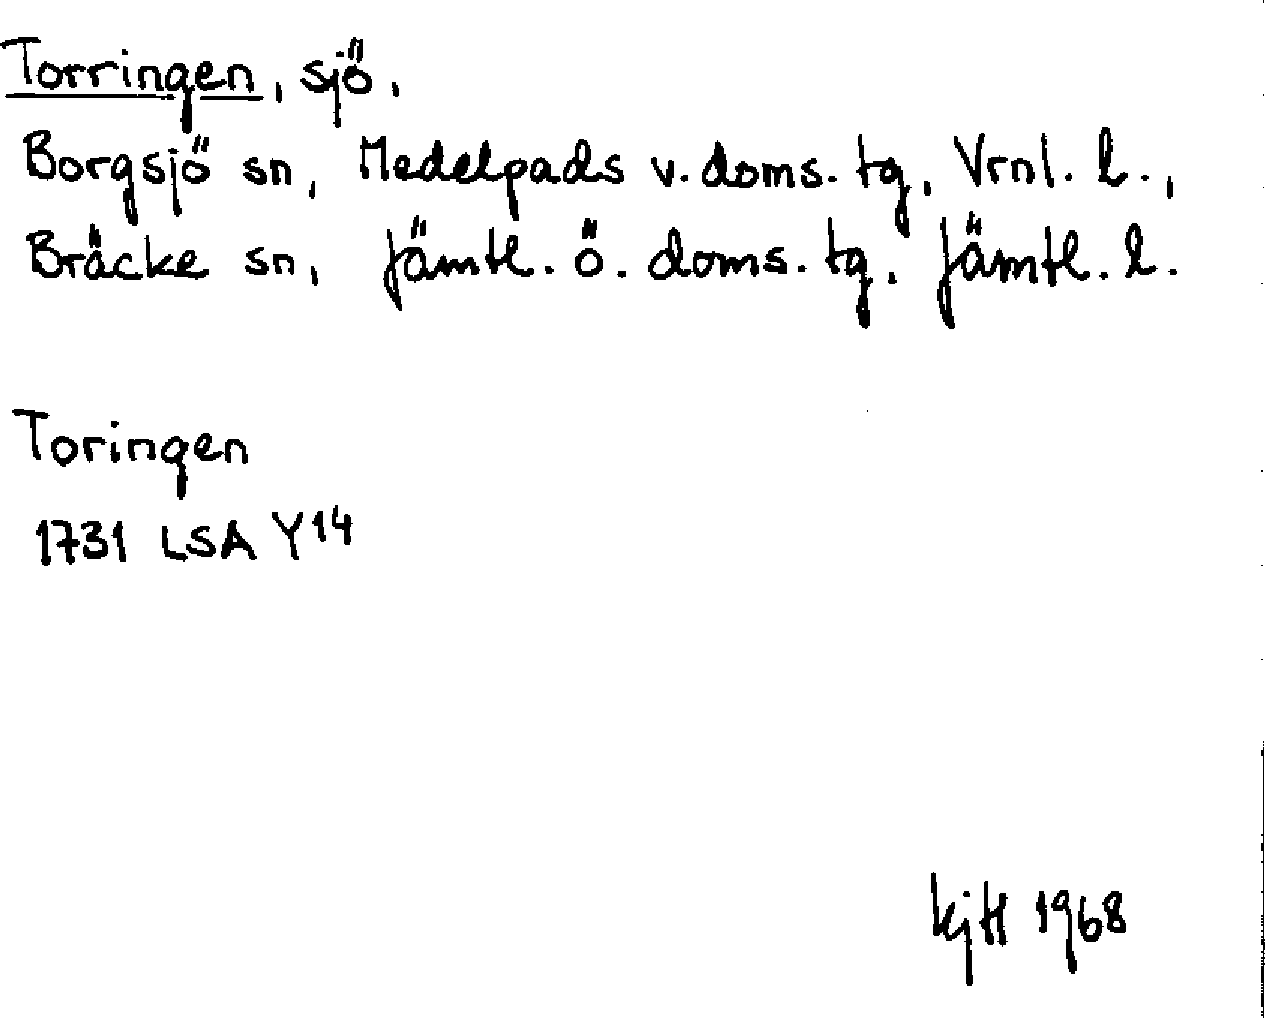 Torringen, sjö,
Borgsjö sn, Medelpads v. doms. tg, Vrnl. l.,
Bräcke sn, Jämtl. ö. doms. tg. Jämtl. l.
Toringen
1731 LSA Y14
1968